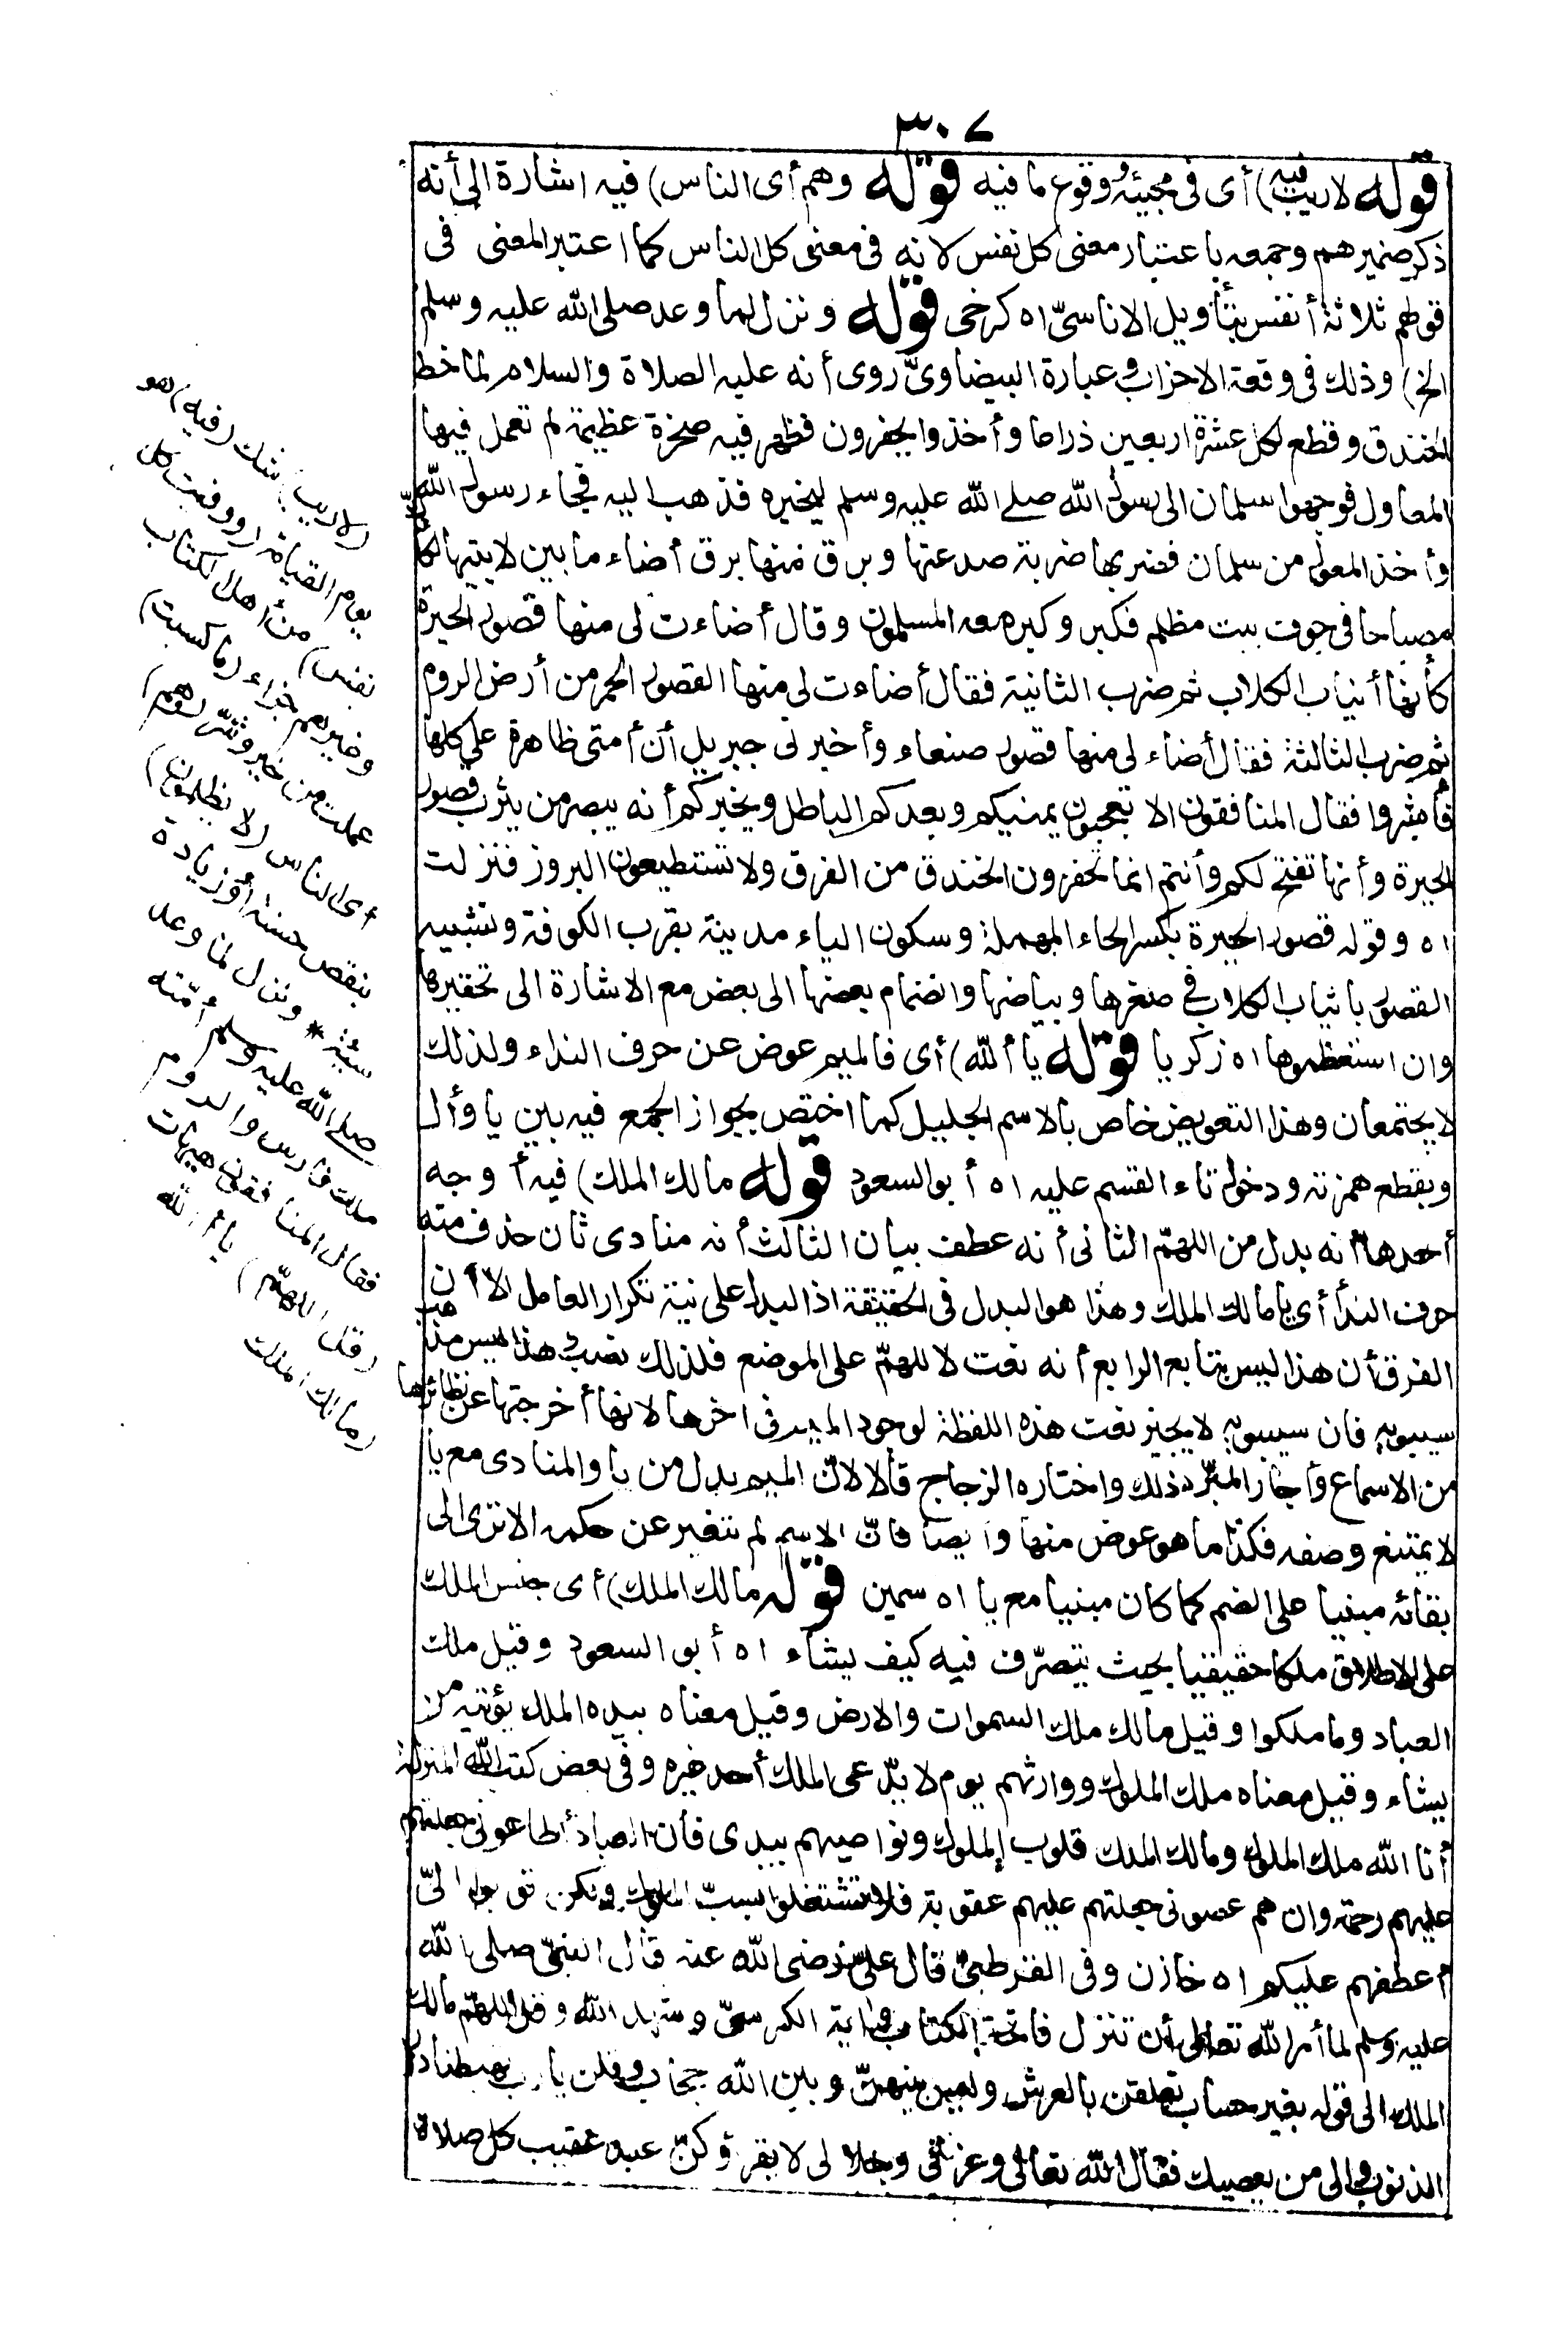 ٣٠٧
قوله لاريب فيه) أى فى مجيئه ووقوع ما فيه قوله وهم أى الناس) فيه اشارة الى أنه
ذكر ضميرهم وجمعه باعتبار معنى كل نفس لانه فى معنى كل الناس كما اعتبر المعنى فى
قولهم ثلاثة أنفس بتأويل الاناسىّ اه كرخى قوله ونزل لما وعد صلى الله عليه وسلم
الخ) وذلك فى وقعة الاحزاب وعبارة البيضاوىّ روى أنه عليه الصلاة والسلام لما خط
الخندق وقطع لكل عشرة اربعين ذراعا وأخذوا يحفرون فظهر فيه صخرة عظيمة لم تعمل فيها
المعاول فوجهوا سلمان الى رسول الله صلى الله عليه وسلم ليخبره فذهب اليه فجاء رسول الله
وأخذ المعول من سلمان فضربها ضربة صدعتها وبرق منها برق أضاء ما بين لابتيها لكأنّ
مصباحا فى جوف بيت مظلم فكبر وكبر معه المسلمون وقال أضاءت لى منها قصور الحيرة
كأنها أنياب الكلاب ثم ضرب الثانية فقال أضاءت لى منها القصور الحمر من أرض الروم
ثم ضرب الثالثة فقال أضاء لى منها قصور صنعاء وأخبرنى جبريل أن أمتى ظاهرة على كلها
فأبشروا فقال المنافقون الا تعجبون يمنيكم ويعدكم الباطل ويخبركم أنه يبصر من يثرب قصور
الحيرة وأنها تفتح لكم وأنتم انما تحفرون الخندق من الفرق ولا تستطيعون البروز فنزلت
اه وقوله قصور الحيرة بكسر الحاء المهملة وسكون الياء مدينة بقرب الكوفة وتشبيه
القصور بانياب الكلاب فى صغرها وبياضها وانضمام بعضها الى بعض مع الاشارة الى تحقيرها
وان استعظموها اه زكريا قوله يا ألله) أى فالميم عوض عن حرف النداء ولذلك
لا يجتمعان وهذا التعويض خاص بالاسم الجليل كما اختص بجواز الجمع فيه بين يا وأل
وبقطع همزته ودخول تاء القسم عليه اه أبو السعود قوله مالك الملك) فيه أوجه
أحدها أنه بدل من اللهمّ الثانى أنه عطف بيان الثالث أنه منادى ثان حذف منه
حرف الندا أى يا مالك الملك وهذا هو البدل فى الحقيقة اذ البدل على نية تكرار العامل الا أن
الفرق أن هذا ليس بتابع الرابع أنه نعت لاللهمّ على الموضع فلذلك نصب وهذا ليس مذهب
سيبويه فان سيبويه لا يجيز نعت هذه اللفظة لوجود الميم فى اخرها لانها أخرجتها عن نظائرها
من الاسماء وأجاز المبرّد ذلك واختاره الزجاج قالا لانّ الميم بدل من يا والمنادى مع يا
لا يمتنع وصفه فكذا ما هو عوض منها وأيضا فانّ الاسم لم يتغير عن حكمه الا ترى الى
بقائه مبنيا على الضم كما كان مبنيا مع يا اه سمين قوله مالك الملك) أى جنس الملك
على الاطلاق ملكا حقيقيا بحيث يتصرّف فيه كيف يشاء اه أبو السعود وقيل ملك
العباد وما ملكوا وقيل مالك ملك السموات والارض وقيل معناه بيده الملك يؤتيه من
يشاء وقيل معناه ملك الملوك ووارثهم يوم لا يدّعى الملك أحد غيره وفى بعض كتب الله المنزلة
أنا الله ملك الملوك ومالك الملك قلوب الملوك ونواصيهم بيدى فان العباد أطاعونى جعلتهم
عليهم رحمة وان هم عصونى جعلتهم عليهم عقوبة فلا تشتغلوا بسبّ الملوك ولكن توبوا الىّ
أعطفهم عليكم اه خازن وفى القرطبىّ قال علىّ رضى الله عنه قال النبىّ صلى الله
عليه وسلم لما أمر الله تعالى أن تنزل فاتحة الكتاب وآية الكرسىّ وشهد الله وقل اللهمّ مالك
الملك الى قوله بغير حساب تعلقن بالعرش وليس بينهنّ وبين الله حجاب وقلن يا رب تهبطنا دار
الذنوب والى من يعصيك فقال الله تعالى وعزتى وجلالى لا يقرؤكنّ عبد عقيب كل صلاة
(لاريب) شك (فيه) هو
يوم القيامة (ووفيت كل
نفس) من أهل الكتاب
وغيرهم جزاء (ما كسبت)
عملت من خير وشرّ (وهم)
أى الناس (لا يظلمون)
بنقص حسنة أو زيادة
سيئة * ونزل لما وعد
صلى الله عليه وسلم أمّته
ملك فارس والروم
فقال المنافقون هيهات
(قل اللهمّ) يا ألله
(مالك الملك